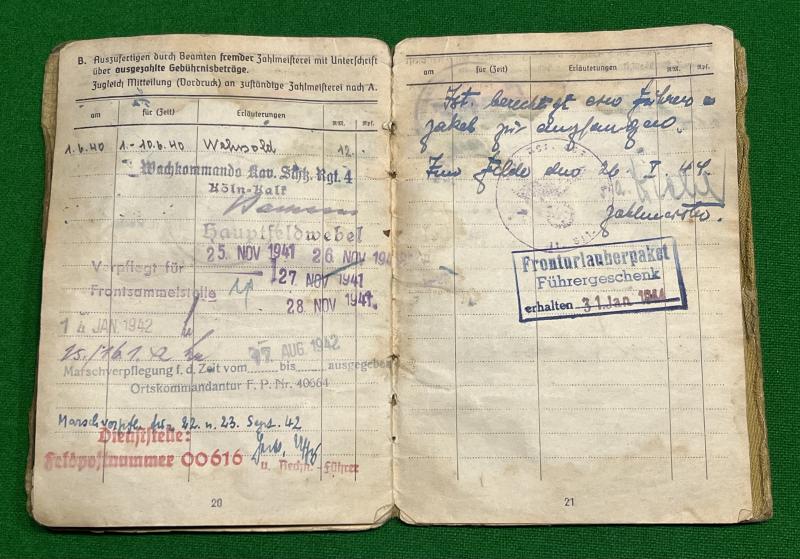 B. Auszufertigen durch Beamten fremder Zahlmeisterei mit Unterschrift
über ausgezahlte Gebührnisbeträge.
Zugleich Mitteilung (Vordruck) an zuständige Zahlmeisterei nach A.
am für (Zeit) Erläuterungen RM. Rpf.
1.6.40 1.-10.6.40 Wehrsold 12.-
Wachkommando Kav. Schtz. Rgt. 4
Köln-Kalk
Hauptfeldwebel
25. NOV 1941 26 NOV 1941
Verpflegt für 27 NOV 1941
Frontsammelstelle 28 NOV 1941
14 JAN 1942
AUG. 1942
Marschverpflegung f. d. Zeit vom bis ausgegeben
Ortskommandantur F. P. Nr. 40664
Marschverpfl. für 22. u. 23. Sept. 42
Dienststelle:
Feldpostnummer 00616
u. Rechn.-Führer
20
am für (Zeit) Erläuterungen RM. Rpf.
Ist berechtigt ein Führer-
paket zu empfangen.
Im Felde den 26. I. 44.
Zahlmeister.
Fronturlauberpaket
Führergeschenk
erhalten 31 Jan. 1944
21